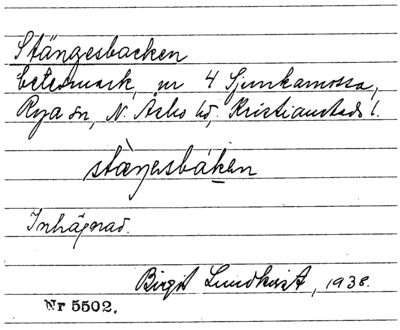 Stängesbacken
betesmark, nr 4 Sjunkamossa,
Rya sn, N. Åsbo hd, Kristianstads l.
stæŋesbáken
Inhägnad.
Birgit Lundkvist, 1938.
Nr 5502.